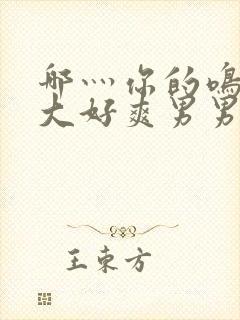 哪灬你的鳴
大好爽男男
王東方